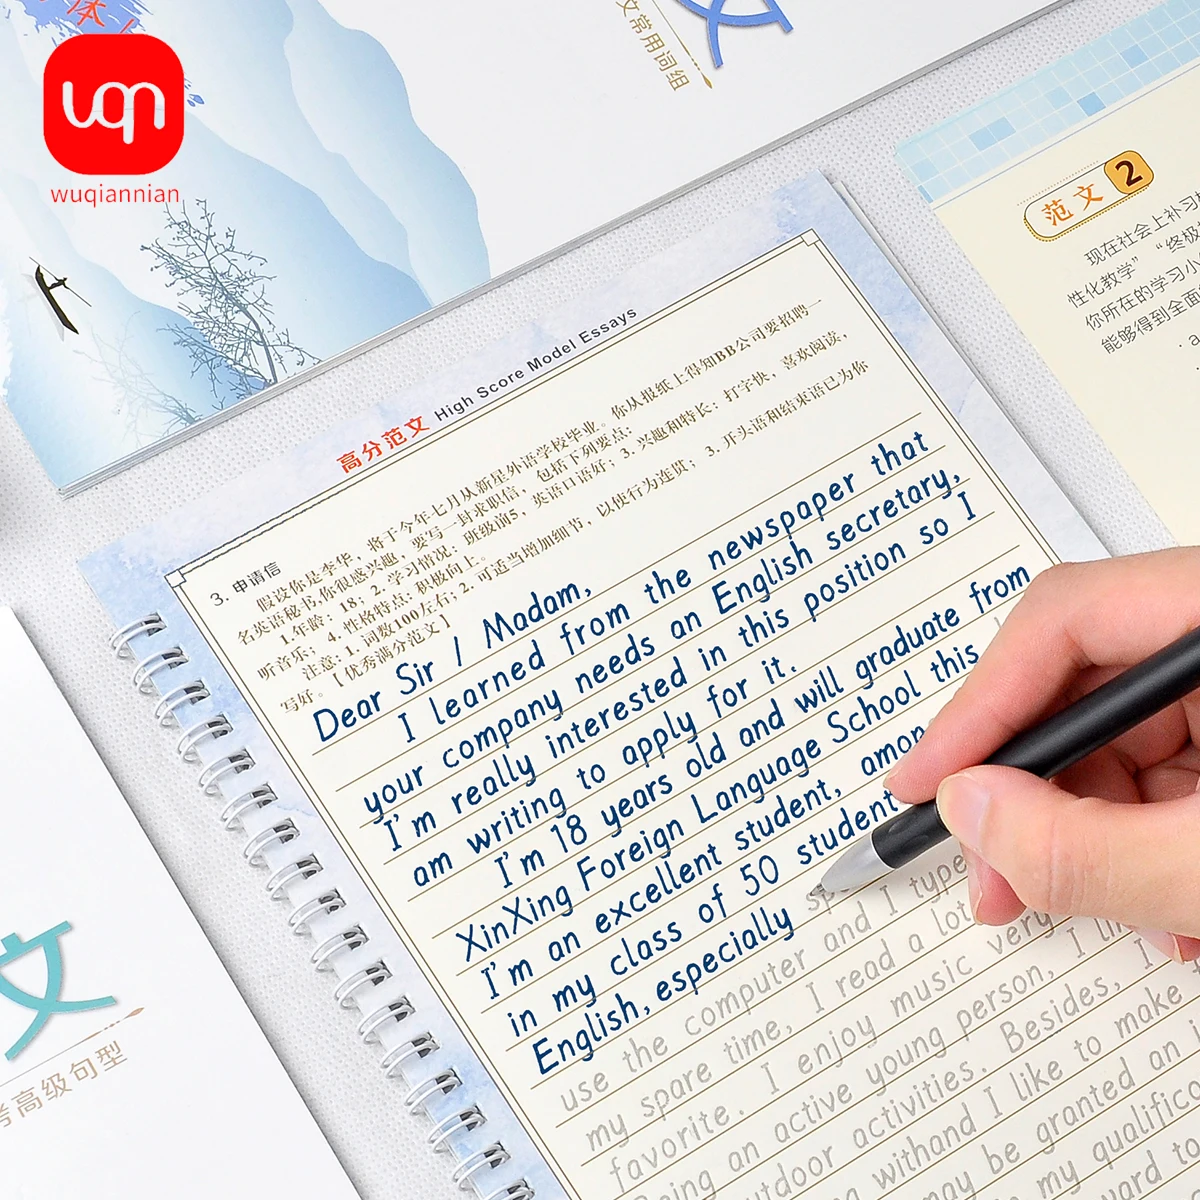 uqn
wuqiannian
文
文常用词组
范文 2
现在社会上补习
性化教学” “终极
你所在的学习小
能够得到全面
高分范文 High Score Model Essays
3. 申请信
假设你是李华，将于今年七月从新星外语学校毕业。你从报纸上得知BB公司要招聘一
名英语秘书,你很感兴趣，要写一封求职信，包括下列要点:
1.年龄：18；2.学习情况：班级前5，英语口语好；3. 兴趣和特长：打字快，喜欢阅读，
听音乐； 4. 性格特点：积极向上。
注意：1. 词数100左右；2. 可适当增加细节，以使行为连贯；3. 开头语和结束语已为你
写好。【优秀满分范文】
Dear Sir / Madam,
I learned from the newspaper that
your company needs an English secretary,
I'm really interested in this position so I
am writing to apply for it.
I'm 18 years old and will graduate from
XinXing Foreign Language School this
I'm an excellent student, among
in my class of 50 student
English, especially sp
use the computer and I type
my spare time, I read a lot
favorite. I enjoy music very
Being an active young person, I li
outdoor activities. Besides, I
withand I like to make
may be granted an i
my qualific
ward to
文
考高级句型